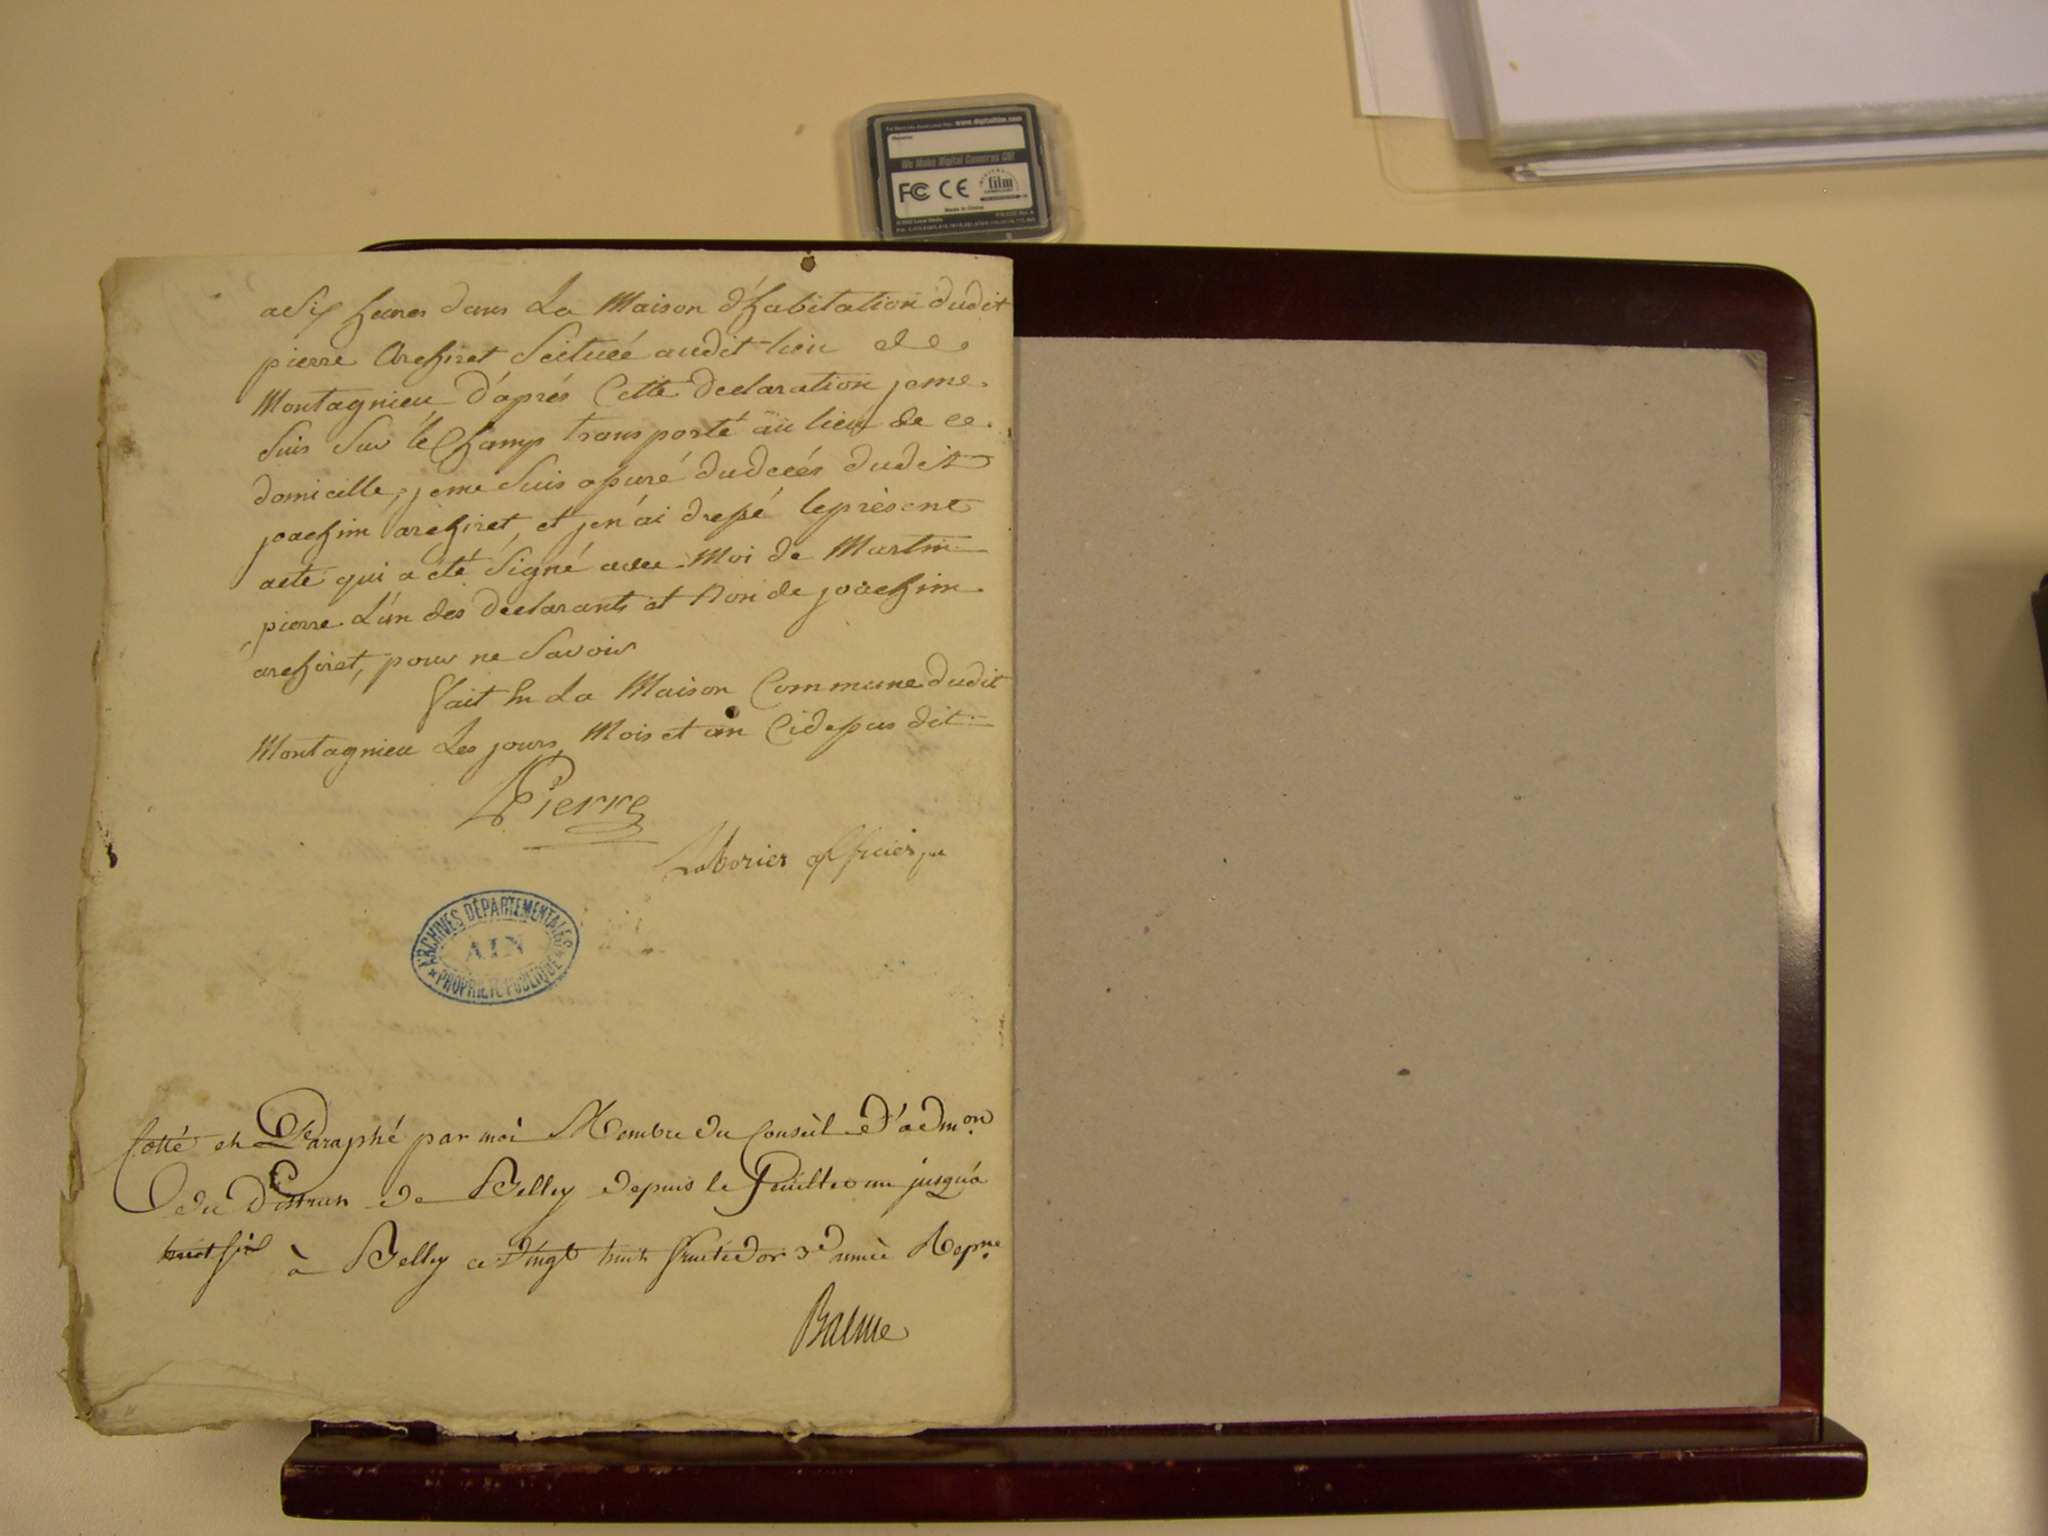 www.digitalfilm.com
We Make Digital Cameras Go!
FC CE film
Made in China
a Six heures dans La Maison d'habitation dudit
pierre Archiret Scituée audit lieu de
Montagnieu d'aprés Cette declaration jeme
Suis Sur le Champ transporté au lieu de ce
domicille, jeme Suis assuré dudecés dudit
joachim archiret, et jen'ai dressé leprèsent
acte qui a eté Signé avec Moi de Martin
pierre L'un des declarants et Non de joachim
archiret, pour ne Savoir
fait En La Maison Commune dudit
Montagnieu Les jours, Mois et an Cidessus dit
Pierre
Laborier officier
ARCHIVES DÉPARTEMENTALES
AIN
PROPRIÉTÉ PUBLIQUE
Cotté et Paraphé par moi Membre du Conseil d'admon
du District de Belley depuis le feuillet un jusqu'a
six à Belley ce Vingt huit fructidor 3e année Repne
Balme